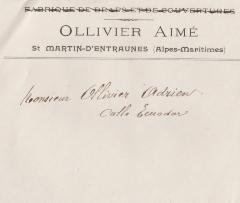 FABRIQUE DE DRAPS ET DE COUVERTURES
OLLIVIER AIMÉ
St MARTIN-D'ENTRAUNES (Alpes-Maritimes)
Monsieur Ollivier Adrien
Calle Ecuador